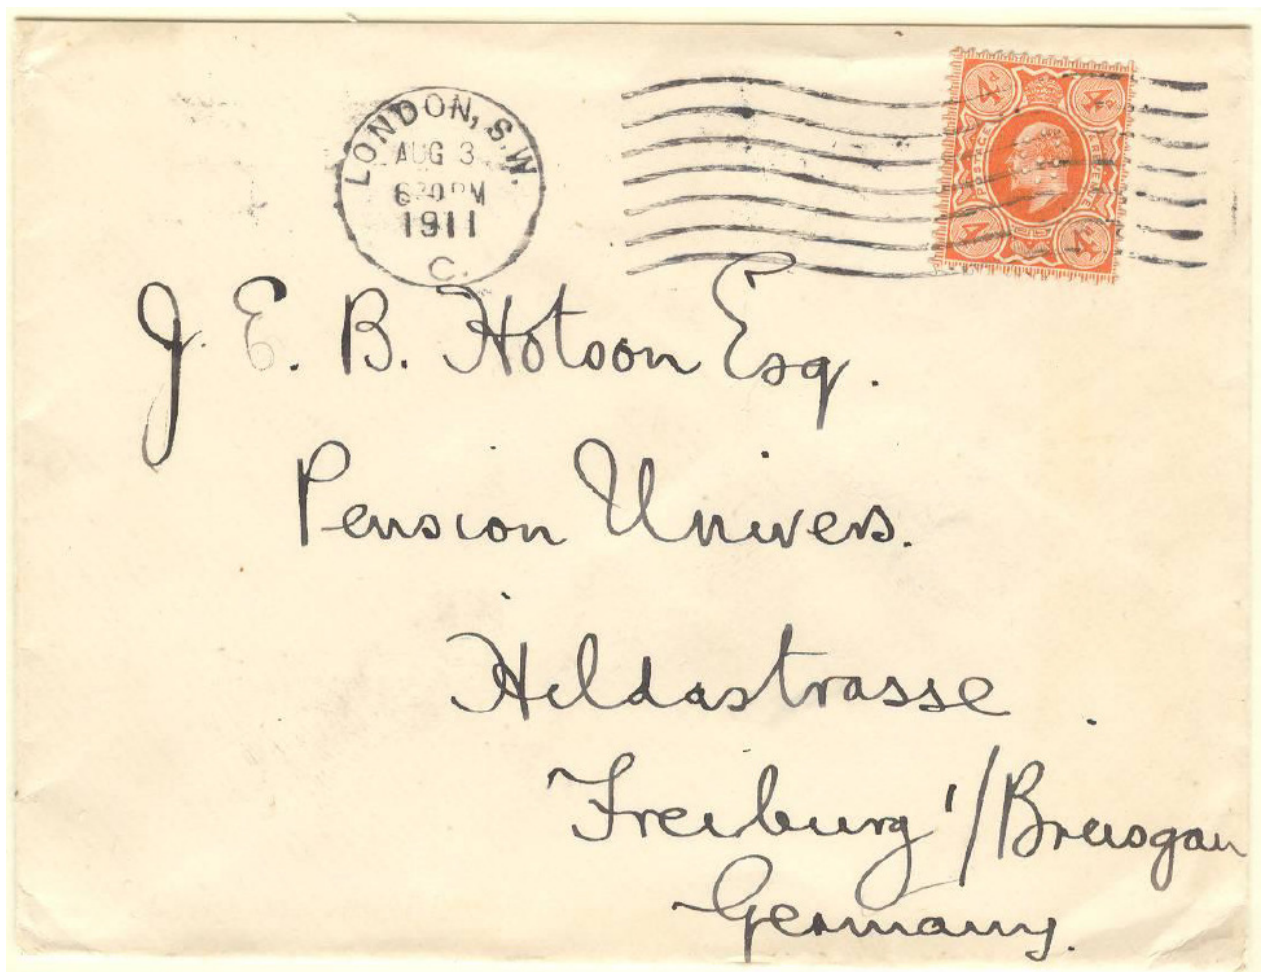 LONDON, S.W.
AUG 3
6 30 PM
1911
C.
4d 4d
POSTAGE & REVENUE
4d 4d
J. E. B. Hotson Esq.
Pension Univers.
Hildastrasse
Freiburg i/Breisgau
Germany.